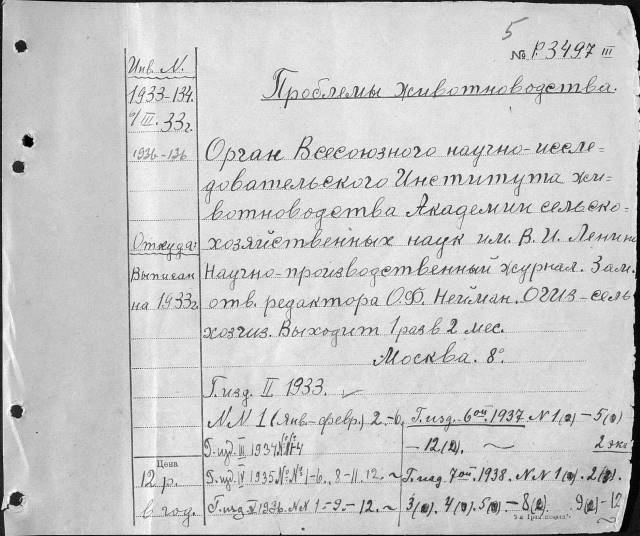 5
№ Р3497 III
Инв. N.
1933-134.
9/III. 33г.
1936-136
Откуда:
Выписан
на 1933г
Цена
12 р.
в год.
Проблемы животноводства.
Орган Всесоюзного научно-иссле=
довательского Института жи=
вотноводства Академии сельско-
хозяйственных наук им. В. И. Ленина
Научно-производственный журнал. Зам.
отв. редактора О.Ф. Нейман. ОГИЗ-сель
хозгиз. Выходит 1 раз в 2 мес.
Москва. 8°.
Г. изд. II 1933.
N N 1 (Янв.-февр.) 2.-6.
Г. изд. III 1934 №№ 1-4
Г. изд. IV 1935 №№ 1-6. 8-11. 12. ~
Г. изд. V 1936. N N 1.-9.-12. ~
Г. изд. 6ой 1937. N 1(2) - 5(2)
-12.(2). ~ 2 экз
Г. изд 7ой. 1938. N N 1(2). 2(2).
3(2). 4(2). 5(2) - 8(2). 9(2)-12